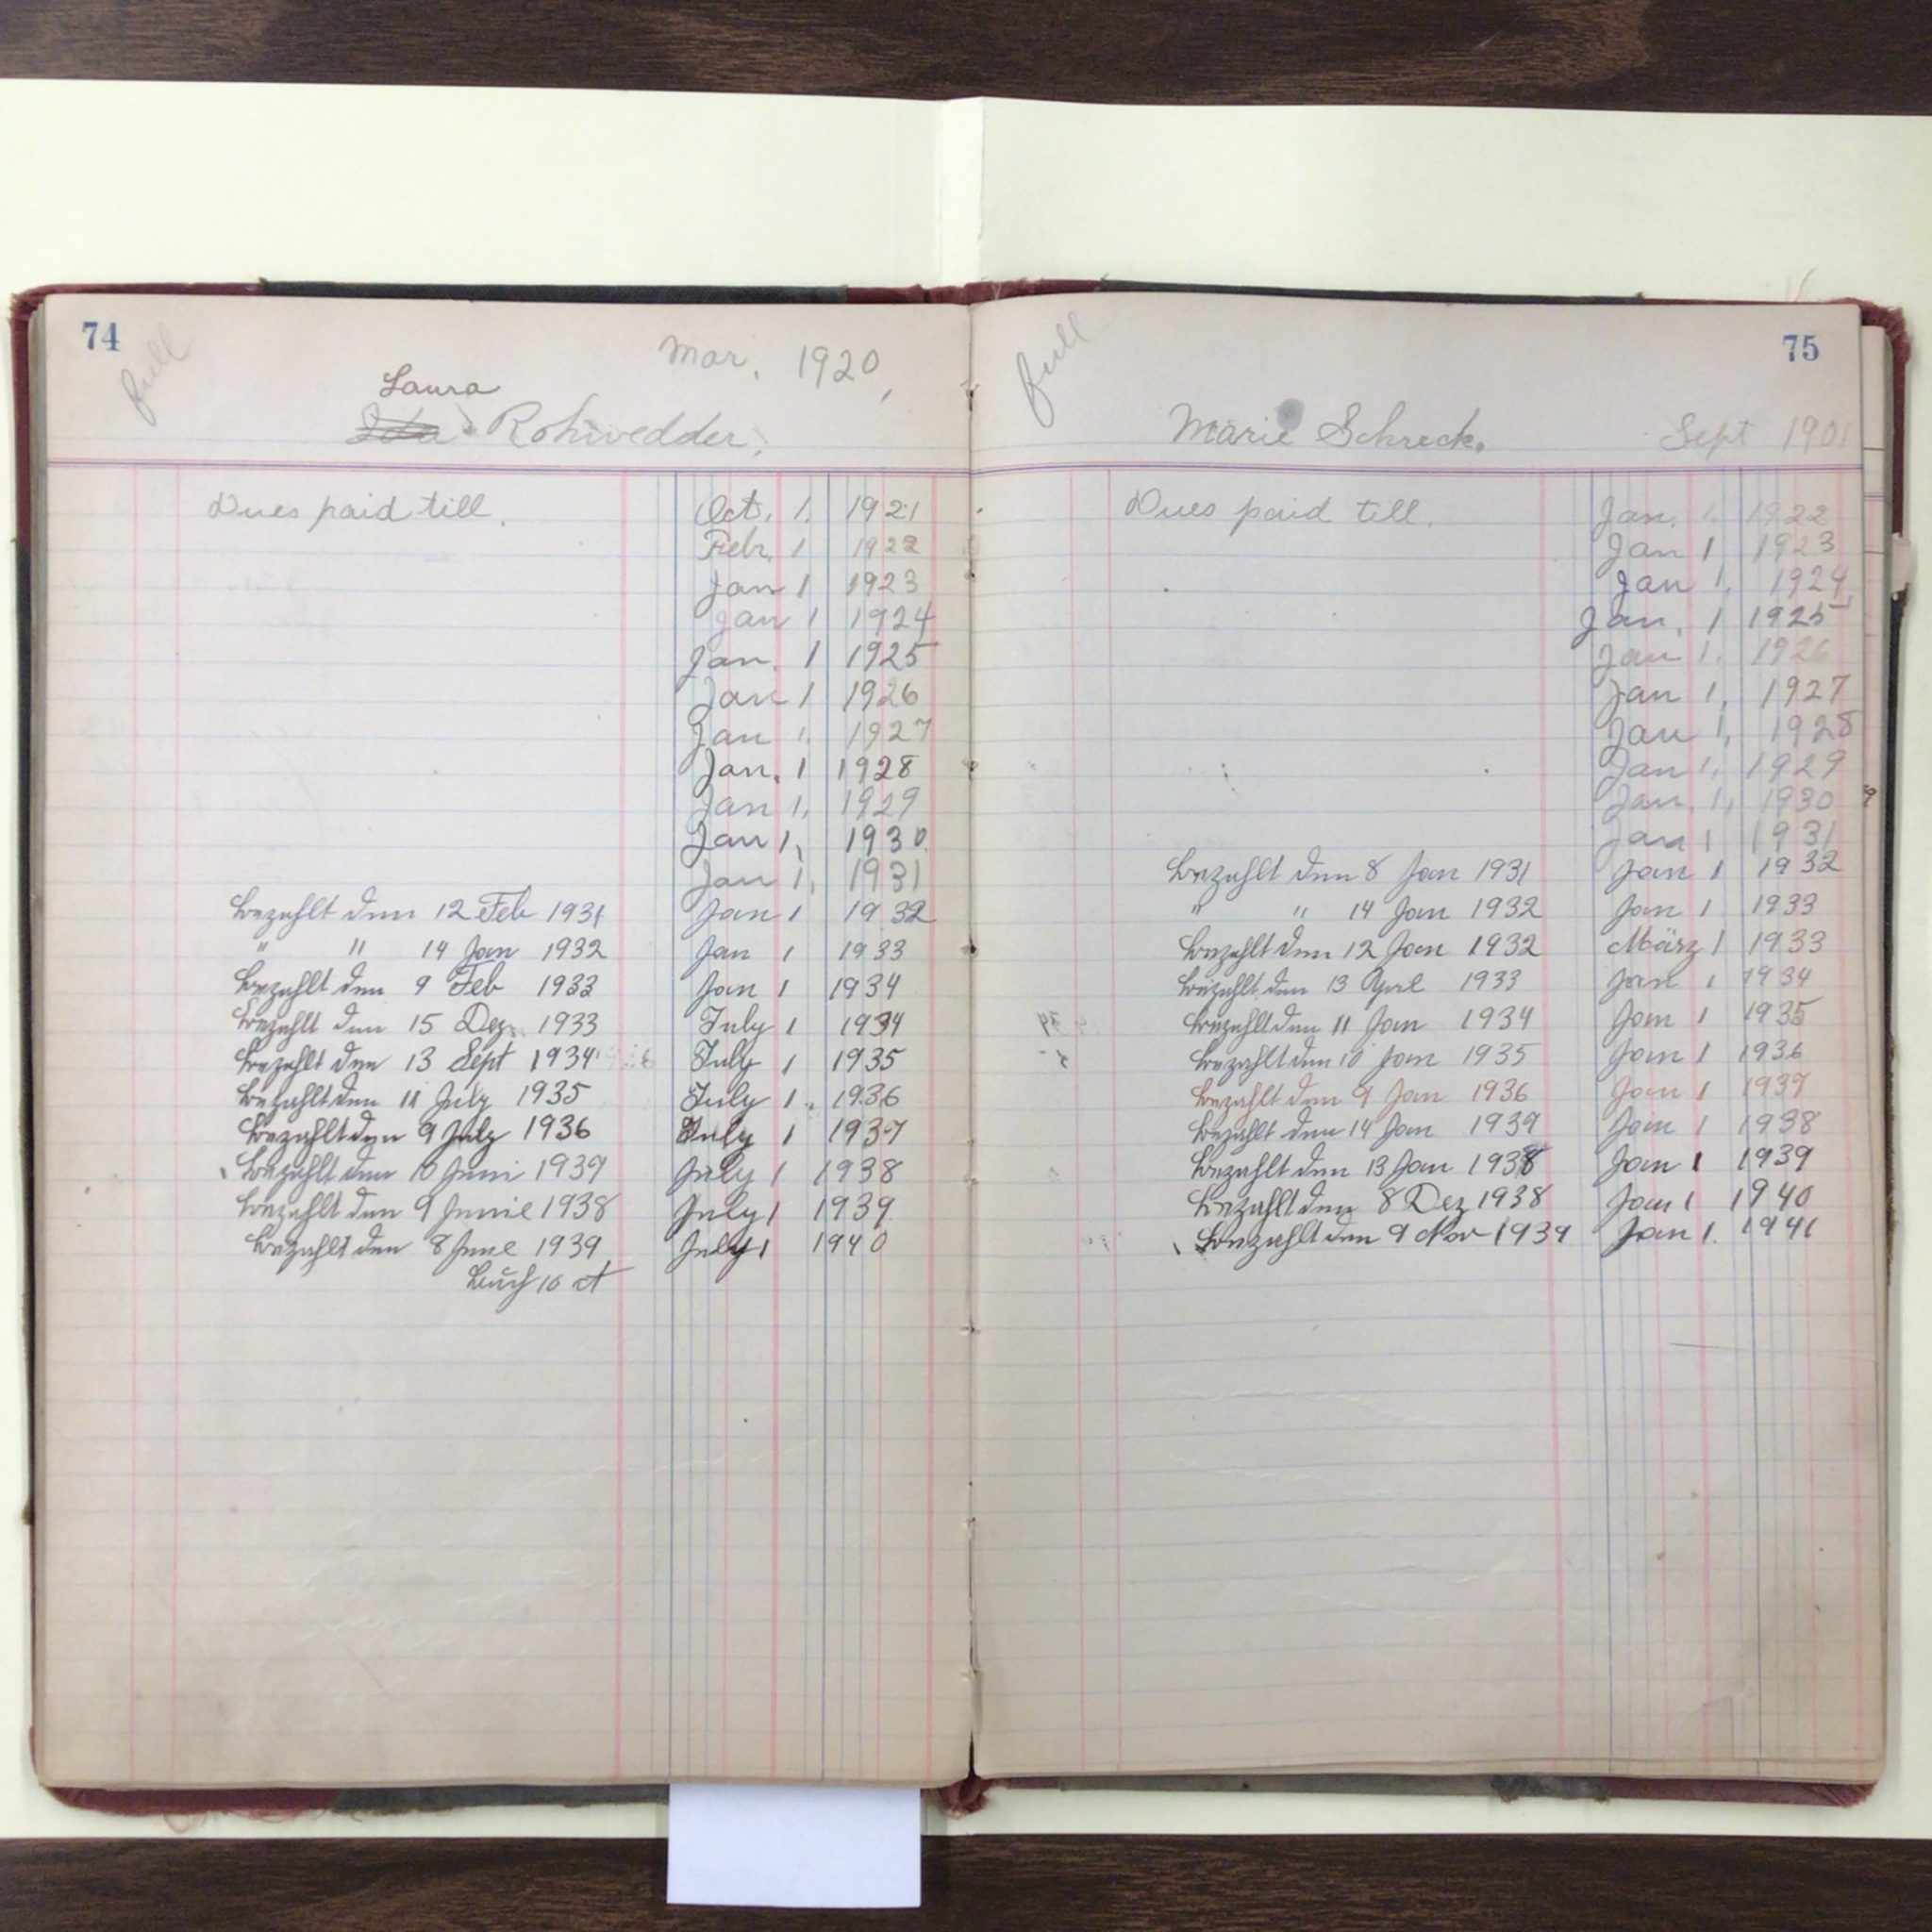 74
full
Mar. 1920,
Laura
Ida Rohwedder,
Dues paid till. Oct. 1. 1921
Febr. 1 1922
Jan 1 1923
Jan 1 1924
Jan. 1 1925
Jan 1 1926
Jan 1. 1927
Jan. 1 1928
Jan 1, 1929
Jan 1, 1930.
Jan 1, 1931
Bezahlt den 12 Feb 1931 Jan 1 1932
" " 14 Jan 1932 Jan 1 1933
Bezahlt den 9 Feb 1933 Jan 1 1934
Bezahlt den 15 Dez. 1933 July 1 1934
Bezahlt den 13 Sept 1934 July 1 1935
Bezahlt den 11 July 1935 July 1. 1936
Bezahlt den 9 July 1936 July 1 1937
Bezahlt den 10 Juni 1937 July 1 1938
Bezahlt den 9 Junie 1938 July 1 1939
Bezahlt den 8 June 1939 July 1 1940
Buch 10 ct
75
full
Marie Schreck. Sept 1901
Dues paid till. Jan. 1. 1922
Jan 1 1923
Jan 1, 1924
Jan. 1 1925
Jan 1. 1926
Jan 1, 1927
Jan 1, 1928
Jan 1, 1929
Jan. 1, 1930
Jan 1 1931
Bezahlt den 8 Jan 1931 Jan 1 1932
" " 14 Jan 1932 Jan 1 1933
Bezahlt den 12 Jan 1932 März 1 1933
Bezahlt den 13 April 1933 Jan 1 1934
Bezahlt den 11 Jan 1934 Jan 1 1935
Bezahlt den 10 Jan 1935 Jan 1 1936
Bezahlt den 9 Jan 1936 Jan 1 1937
Bezahlt den 14 Jan 1937 Jan 1 1938
Bezahlt den 13 Jan 1938 Jan 1 1939
Bezahlt den 8 Dez 1938 Jan 1 1940
Bezahlt den 9 Nov 1939 Jan 1. 1941